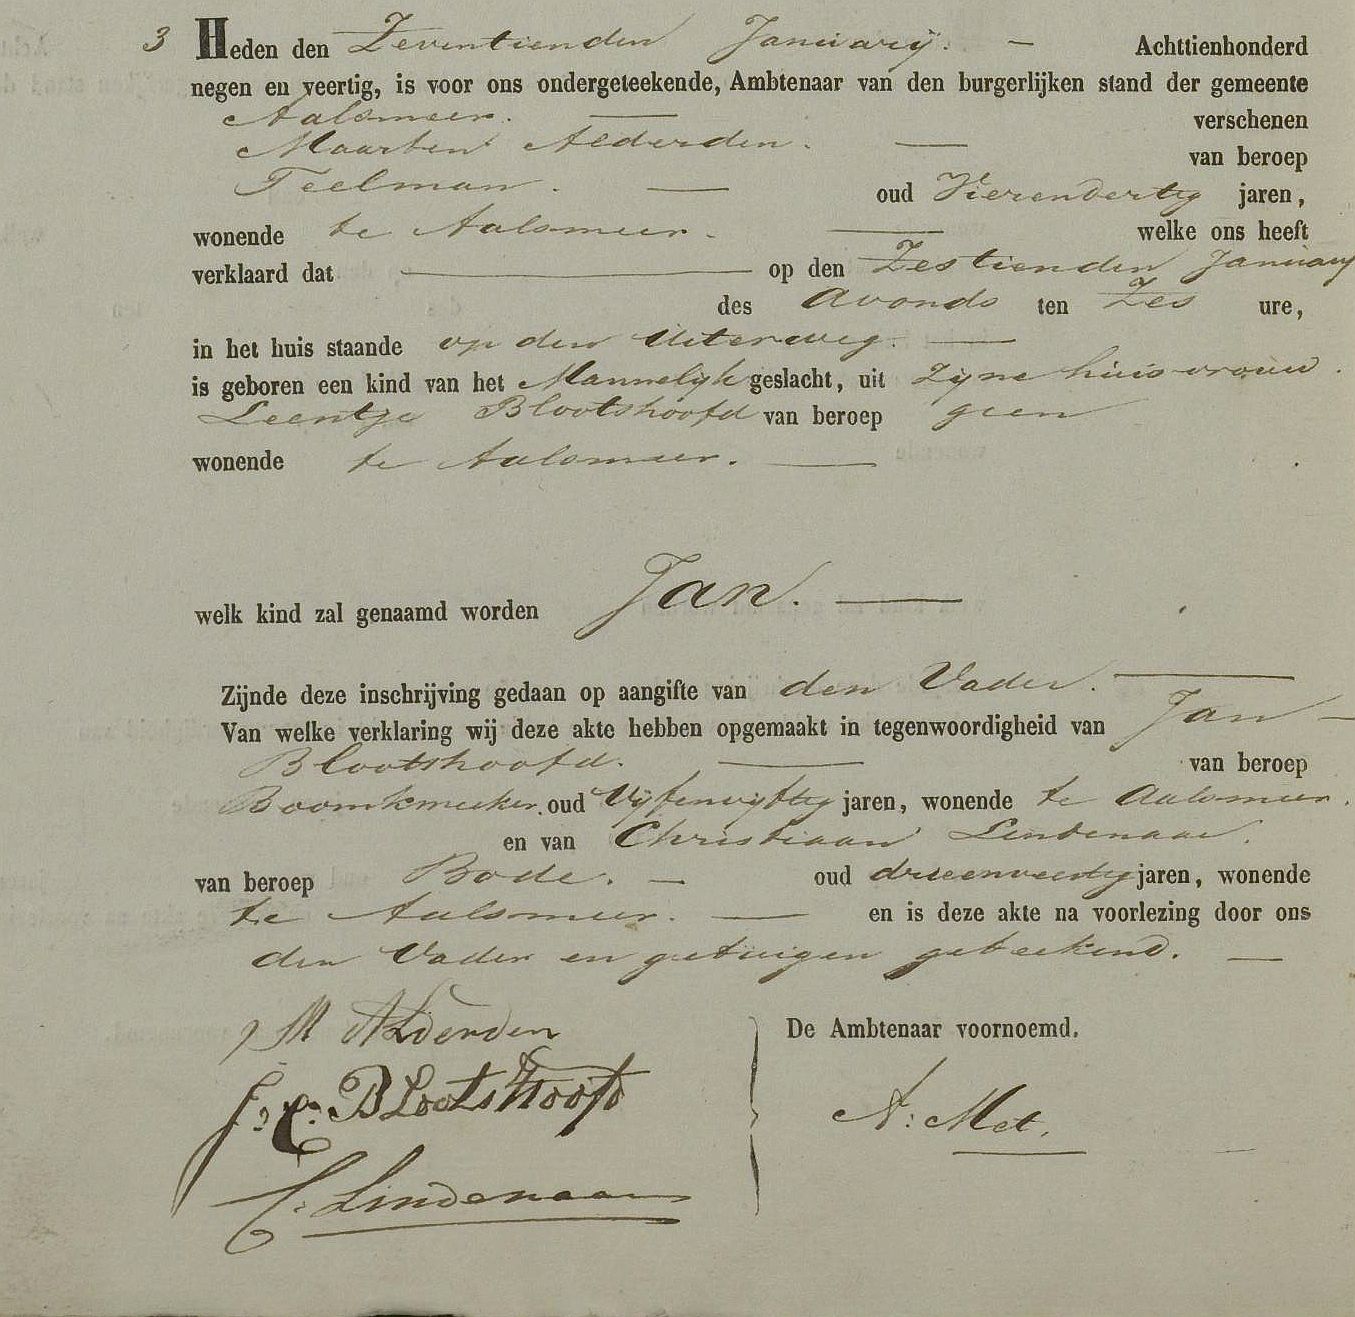 3 Heden den Zeventienden January. — Achttienhonderd
negen en veertig, is voor ons ondergeteekende, Ambtenaar van den burgerlijken stand der gemeente
Aalsmeer. — verschenen
Maarten Alderden. — van beroep
Teelman. — oud Vierendertig jaren,
wonende te Aalsmeer. — welke ons heeft
verklaard dat — op den Zestienden January
des Avonds ten Zes ure,
in het huis staande op den Uiterweg. —
is geboren een kind van het Mannelijk geslacht, uit Zijne huisvrouw.
Leentje Blootshoofd van beroep geen
wonende te Aalsmeer. —
welk kind zal genaamd worden Jan. —
Zijnde deze inschrijving gedaan op aangifte van den Vader. —
Van welke verklaring wij deze akte hebben opgemaakt in tegenwoordigheid van Jan —
Blootshoofd. — van beroep
Boomkweeker. oud Vijfenvijftig jaren, wonende te Aalsmeer.
en van Christiaan Lindenaar.
van beroep Bode. — oud drieenveertig jaren, wonende
te Aalsmeer. — en is deze akte na voorlezing door ons
den Vader en getuigen geteekend. —
M Alderden
De Ambtenaar voornoemd.
J: C: Blootshoofd
A: Met.
C: Lindenaar